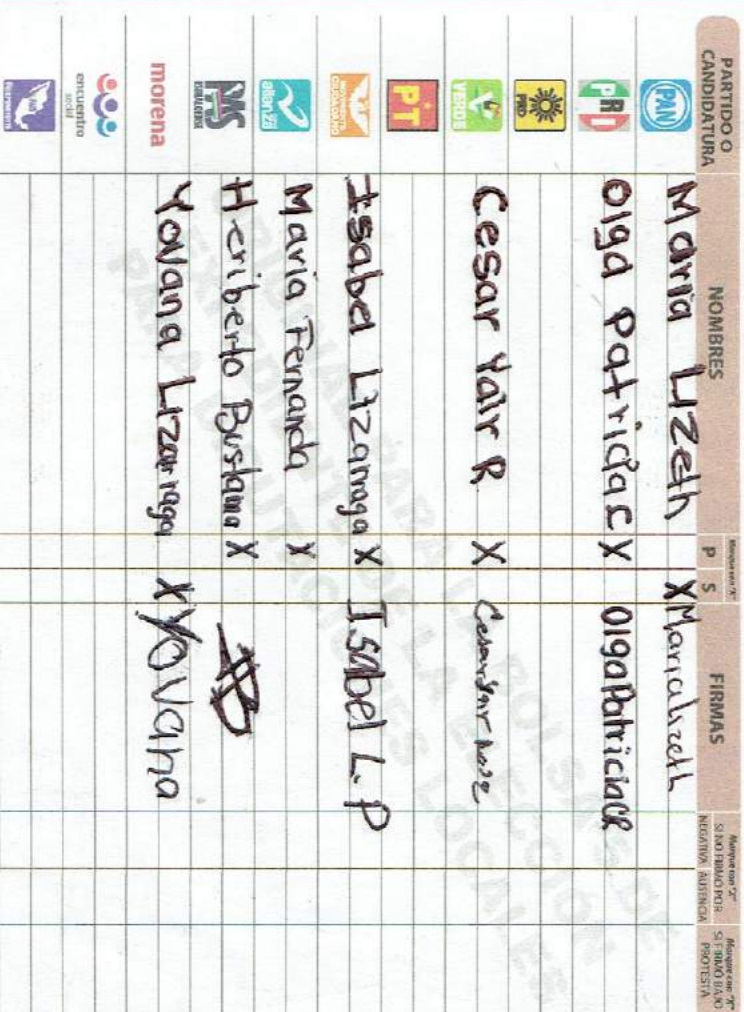 PARTIDO O CANDIDATURA NOMBRES Marque con "X" P S FIRMAS Marque con "X" SI NO FIRMÓ POR NEGATIVA AUSENCIA Marque con "X" SI FIRMÓ BAJO PROTESTA
PAN Maria Lizeth X Marializeth
PRI Olga Patricia C X Olga Patricia CR
PRD
VERDE Cesar Yair R X
PT
MOVIMIENTO CIUDADANO Isabel Lizarraga X Isabel L. P
alianza Maria Fernanda X
PAS SINALOENSE Heriberto Bustama X
morena Yovana Lizarraga X Yovana
encuentro social
PAIS
ORIGINAL PARA LA BOLSA DE
EXPEDIENTE DE LA ELECCIÓN
PARA DIPUTACIONES LOCALES